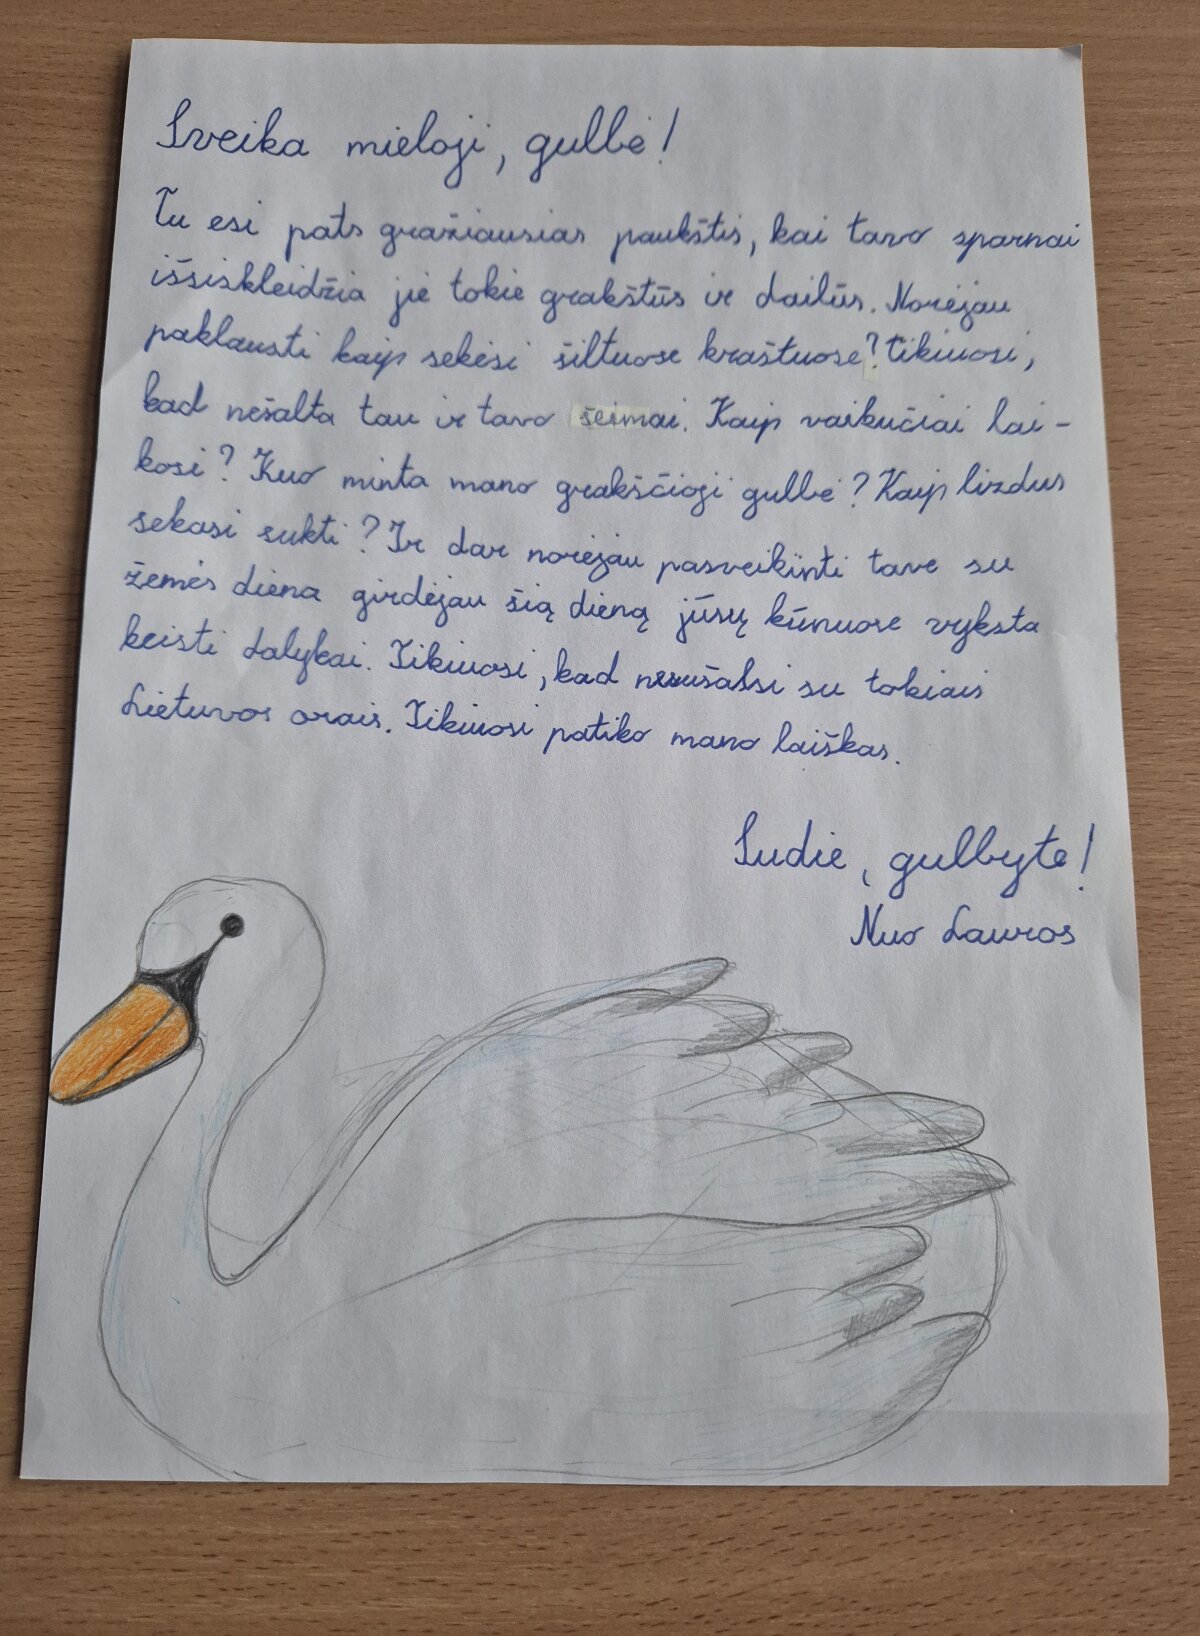 Sveika mieloji, gulbė!
Tu esi pats gražiausias paukštis, kai tavo sparnai
išsiskleidžia jie tokie grakštūs ir dailūs. Norėjau
paklausti kaip sekėsi šiltuose kraštuose? Tikiuosi,
kad nešalta tau ir tavo šeimai. Kaip vaikučiai lai-
kosi? Kuo minta mano grakščioji gulbė? Kaip lizdus
sekasi sukti? Ir dar norėjau pasveikinti tave su
žemės diena girdėjau šią dieną jūsų kūnuose vyksta
keisti dalykai. Tikiuosi, kad nesušalsi su tokiais
Lietuvos orais. Tikiuosi patiko mano laiškas.
Sudie, gulbyte!
Nuo Lauros